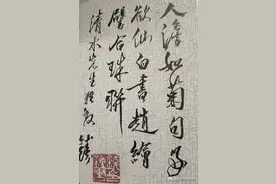 人淡如菊句
欲仙白書趙繪
璧合珠聯
清水先生